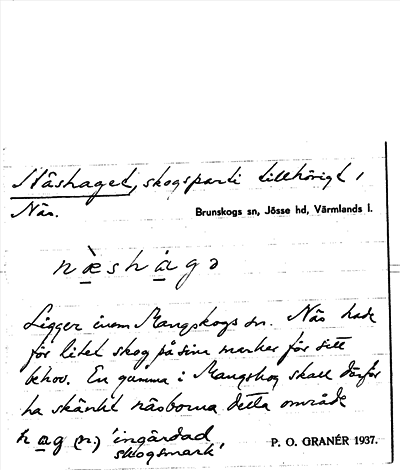 Näshaget, skogsparti tillhörigt
Näs. Brunskogs sn, Jösse hd, Värmlands l.
næ̀shàgə
Ligger inom Mangskogs sn. Näs hade
för litet skog på sina marker för sitt
behov. En gumma i Mangskog skall därför
ha skänkt näsborna detta område
hag (n.) 'ingärdad
skogsmark'. P. O. GRANÉR 1937.